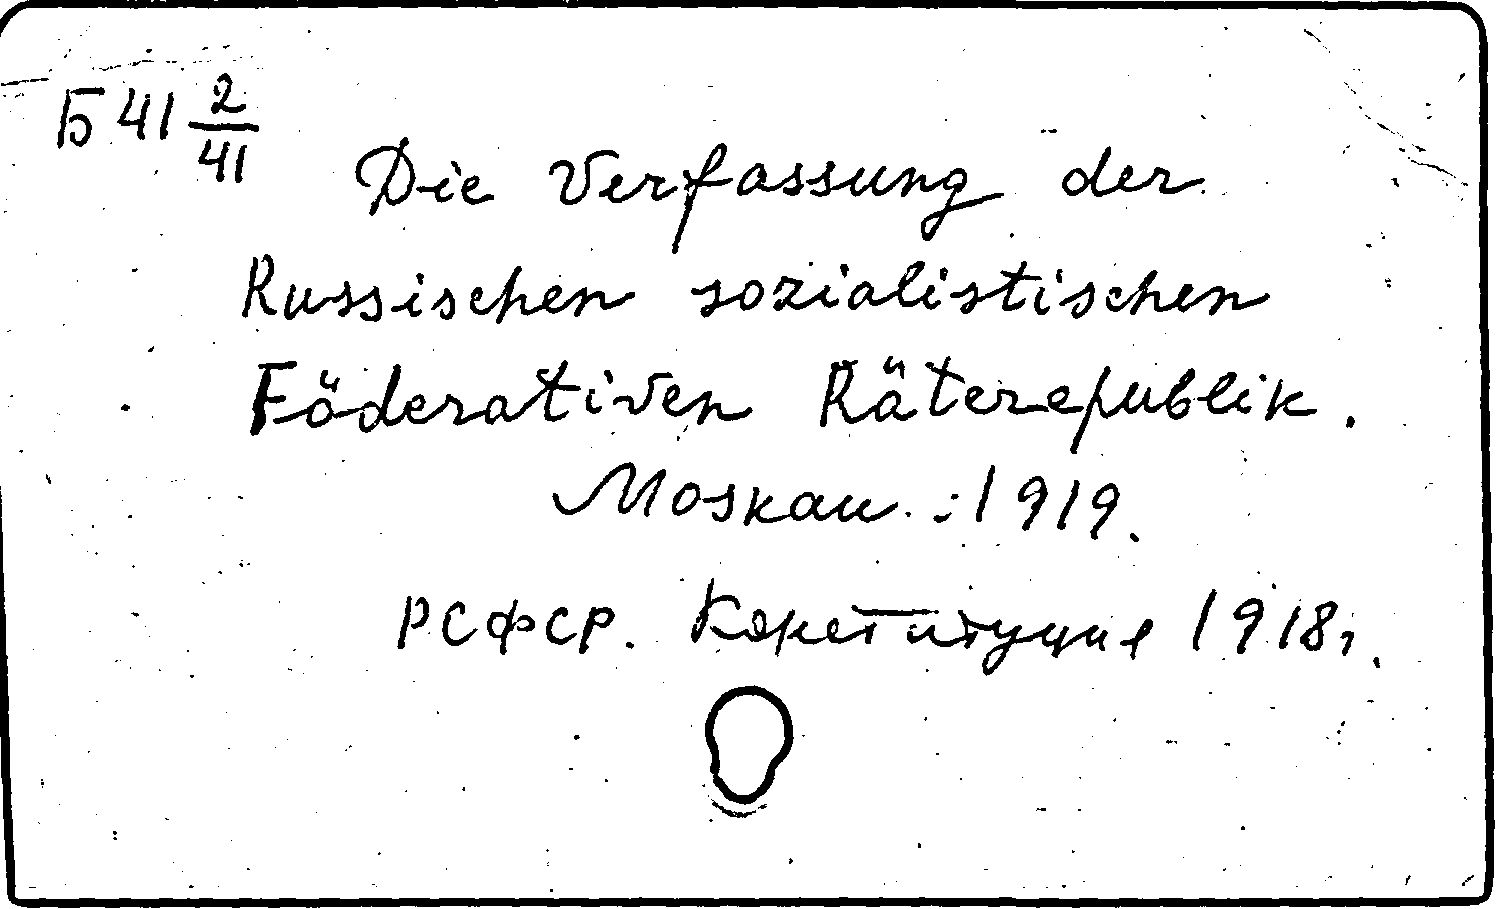 Б 41 2/41
Die Verfassung der
Russischen sozialistischen
Föderativen Räterepublik.
Moskau. 1919.
РСФСР. Конституция 1918г.